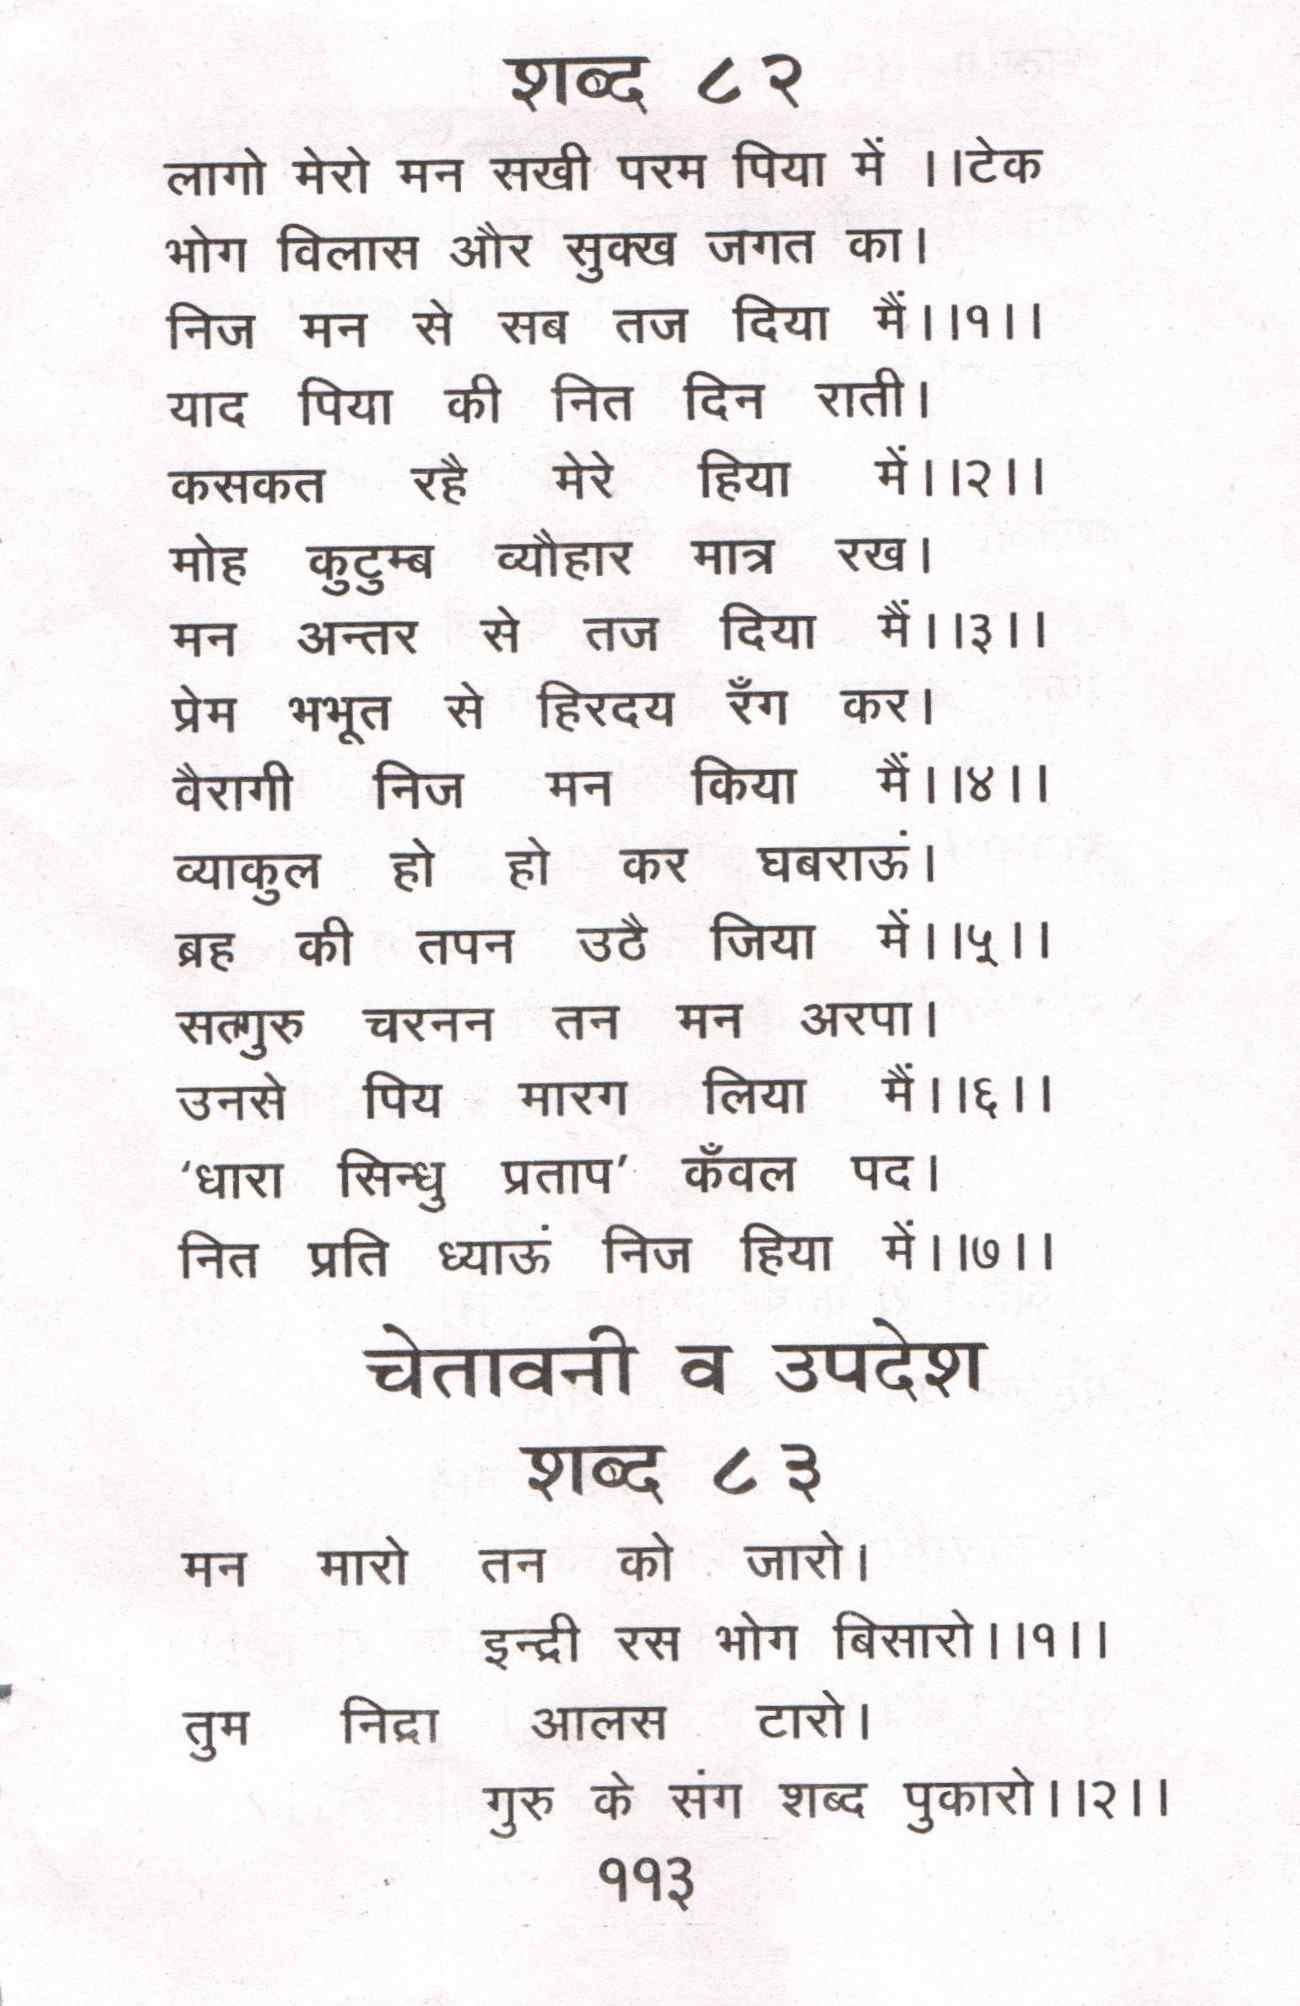 शब्द ८२
लागो मेरो मन सखी परम पिया में ।।टेक
भोग विलास और सुक्ख जगत का।
निज मन से सब तज दिया मैं।।१।।
याद पिया की नित दिन राती।
कसकत रहै मेरे हिया में।।२।।
मोह कुटुम्ब व्यौहार मात्र रख।
मन अन्तर से तज दिया मैं।।३।।
प्रेम भभूत से हिरदय रँग कर।
वैरागी निज मन किया मैं।।४।।
व्याकुल हो हो कर घबराऊं।
ब्रह की तपन उठै जिया में।।५।।
सतगुरु चरनन तन मन अरपा।
उनसे पिय मारग लिया मैं।।६।।
‘धारा सिन्धु प्रताप’ कँवल पद।
नित प्रति ध्याऊं निज हिया में।।७।।
चेतावनी व उपदेश
शब्द ८३
मन मारो तन को जारो।
इन्द्री रस भोग बिसारो।।१।।
तुम निद्रा आलस टारो।
गुरु के संग शब्द पुकारो।।२।।
११३